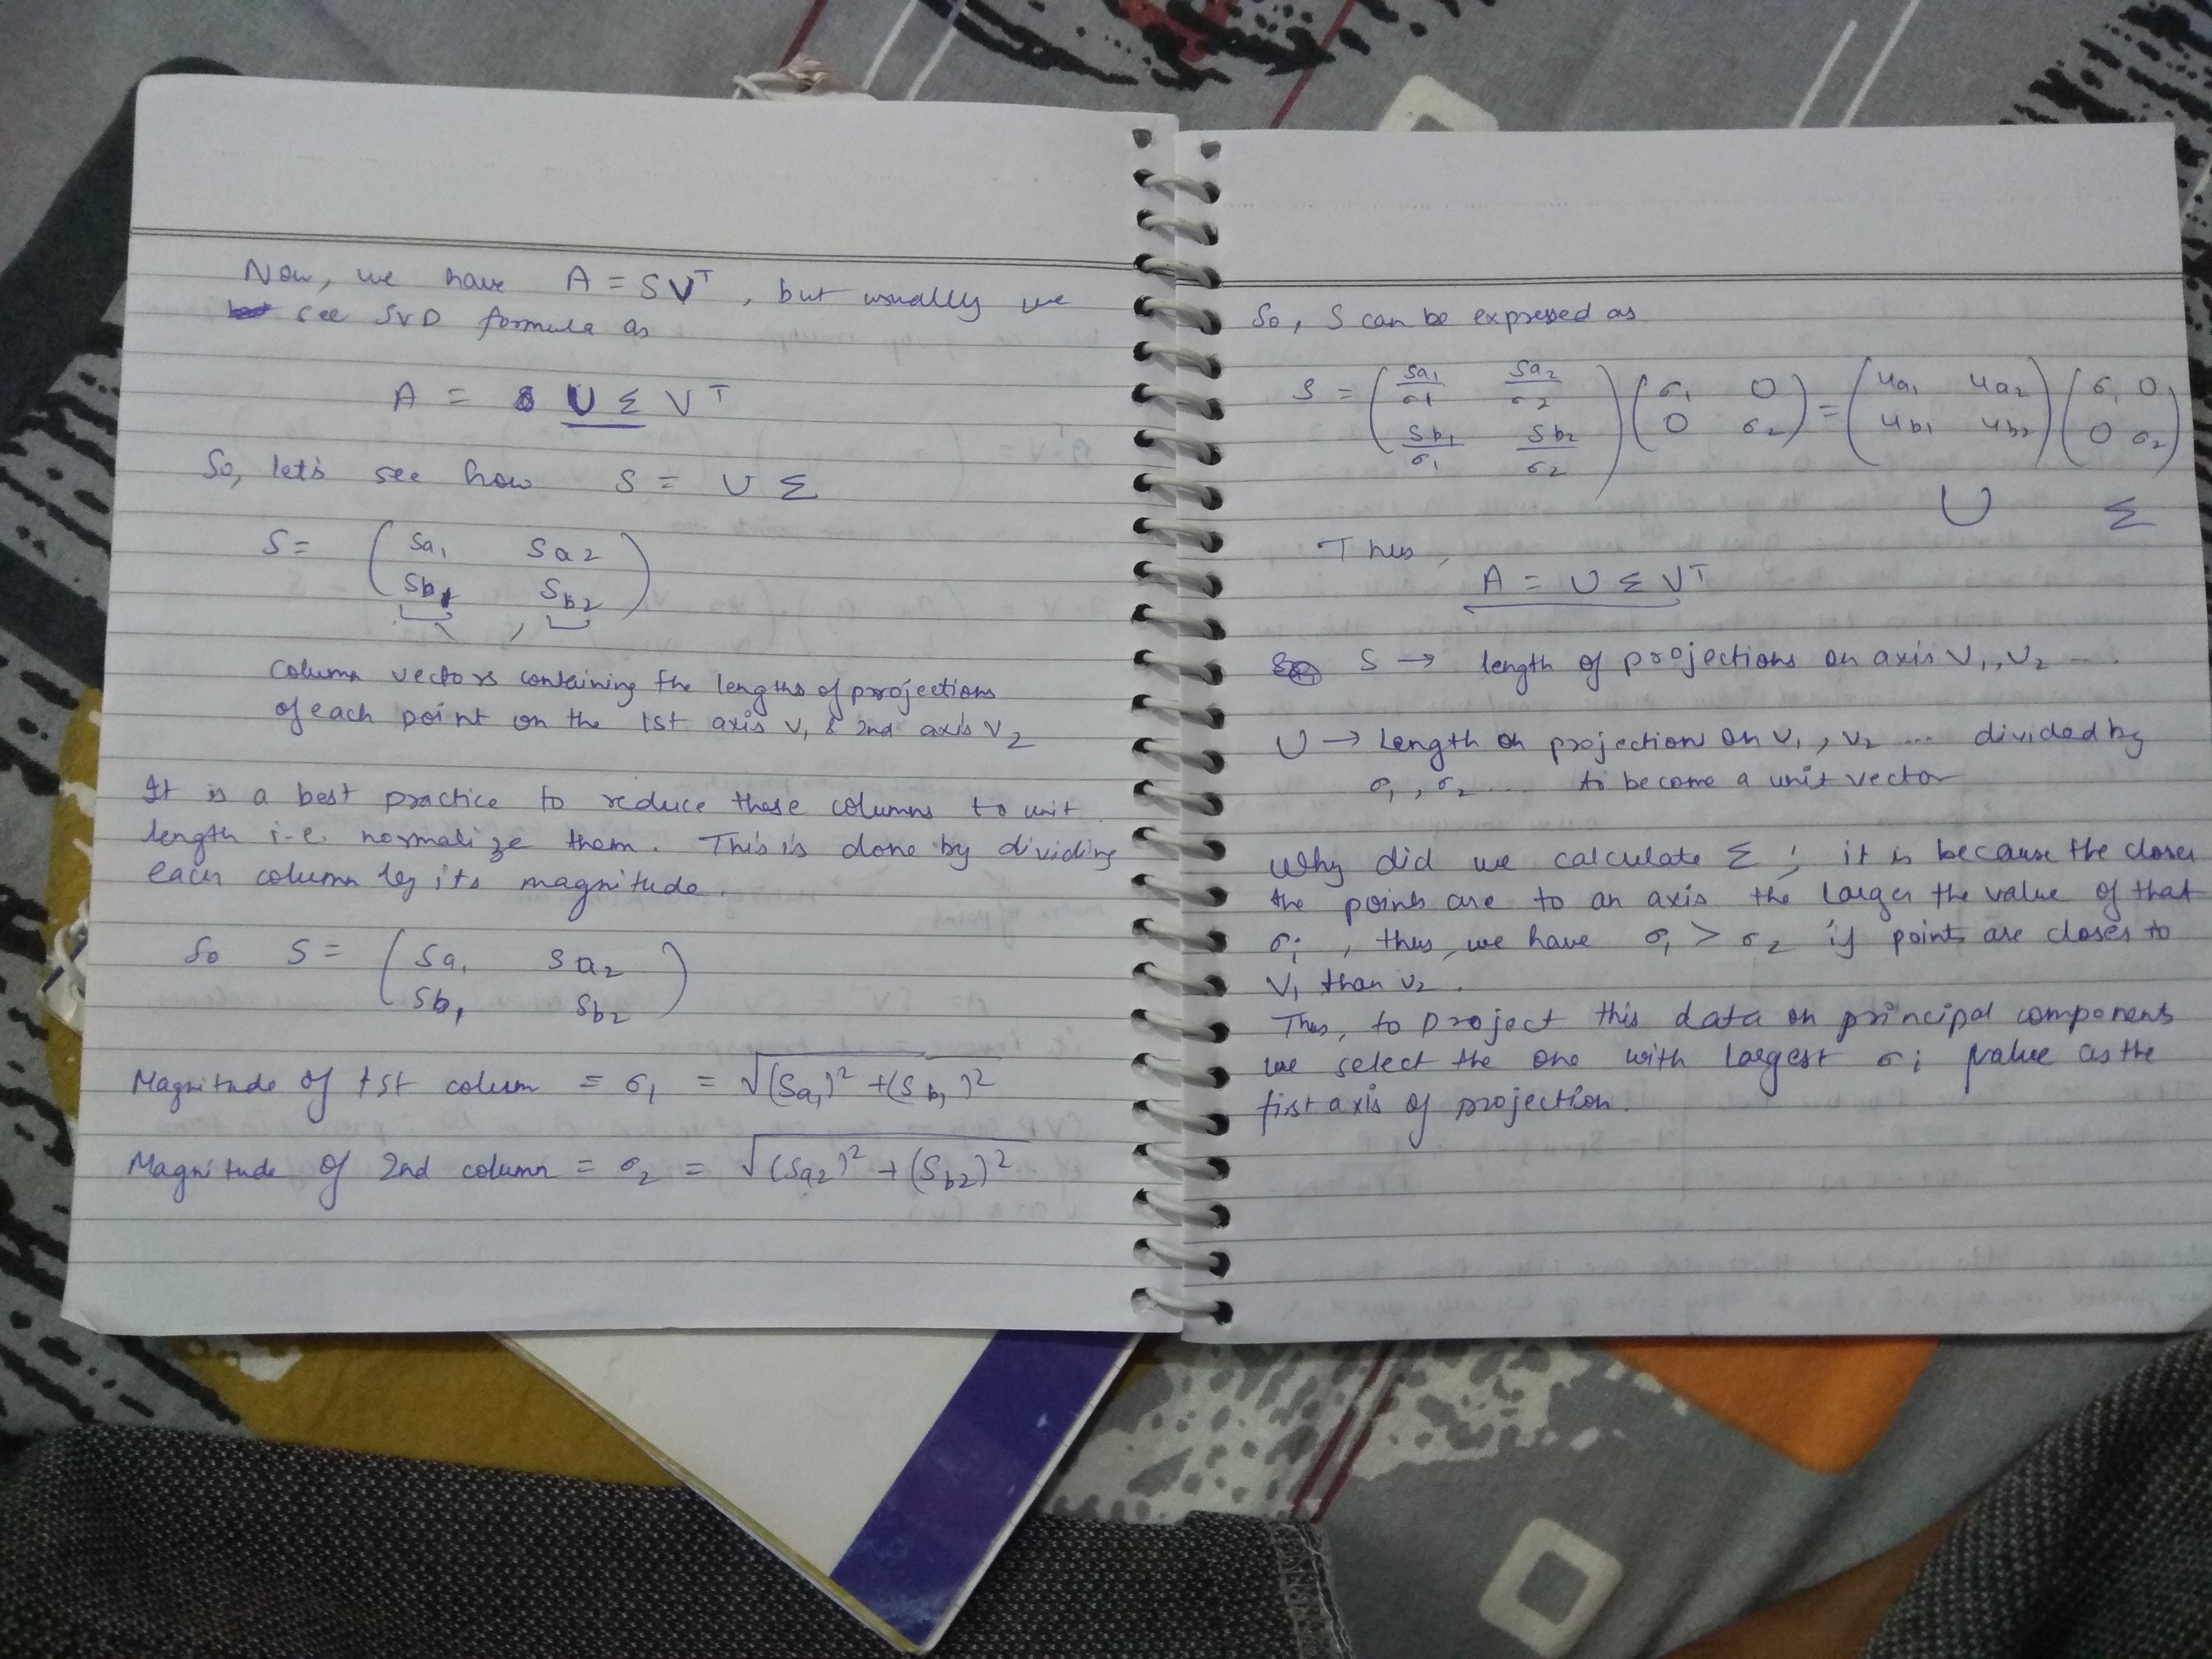 Now, we have A = SVᵀ, but usually we
see SVD formula as
A = U Σ Vᵀ
So, let's see how S = U Σ
S = ( Sa₁ Sa₂
Sb₁ Sb₂ )
column vectors containing the lengths of projections
of each point on the 1st axis V₁ & 2nd axis V₂
It is a best practice to reduce these columns to unit
length i.e. normalize them. This is done by dividing
each column by its magnitude.
So S = ( Sa₁ Sa₂
Sb₁ Sb₂ )
Magnitude of 1st colum = σ₁ = √(Sa₁)² + (Sb₁)²
Magnitude of 2nd column = σ₂ = √(Sa₂)² + (Sb₂)²
So, S can be expressed as
S = ( Sa₁/σ1 Sa₂/σ2 ) ( σ₁ 0 ) = ( ua₁ ua₂ ) ( σ₁ 0 )
( Sb₁/σ₁ Sb₂/σ2 ) ( 0 σ₂ ) ( ub₁ ub₂ ) ( 0 σ₂ )
U Σ
Thus,
A = U Σ Vᵀ
S → length of projections on axis V₁, V₂ ...
U → Length on projection on V₁, V₂ ... divided by
σ₁, σ₂ ... to become a unit vector
Why did we calculate Σ; it is because the closer
the points are to an axis the larger the value of that
σi, thus, we have σ₁ > σ₂ if points are closer to
V₁ than V₂.
Thus, to project this data on principal components
we select the one with largest σi value as the
first axis of projection.